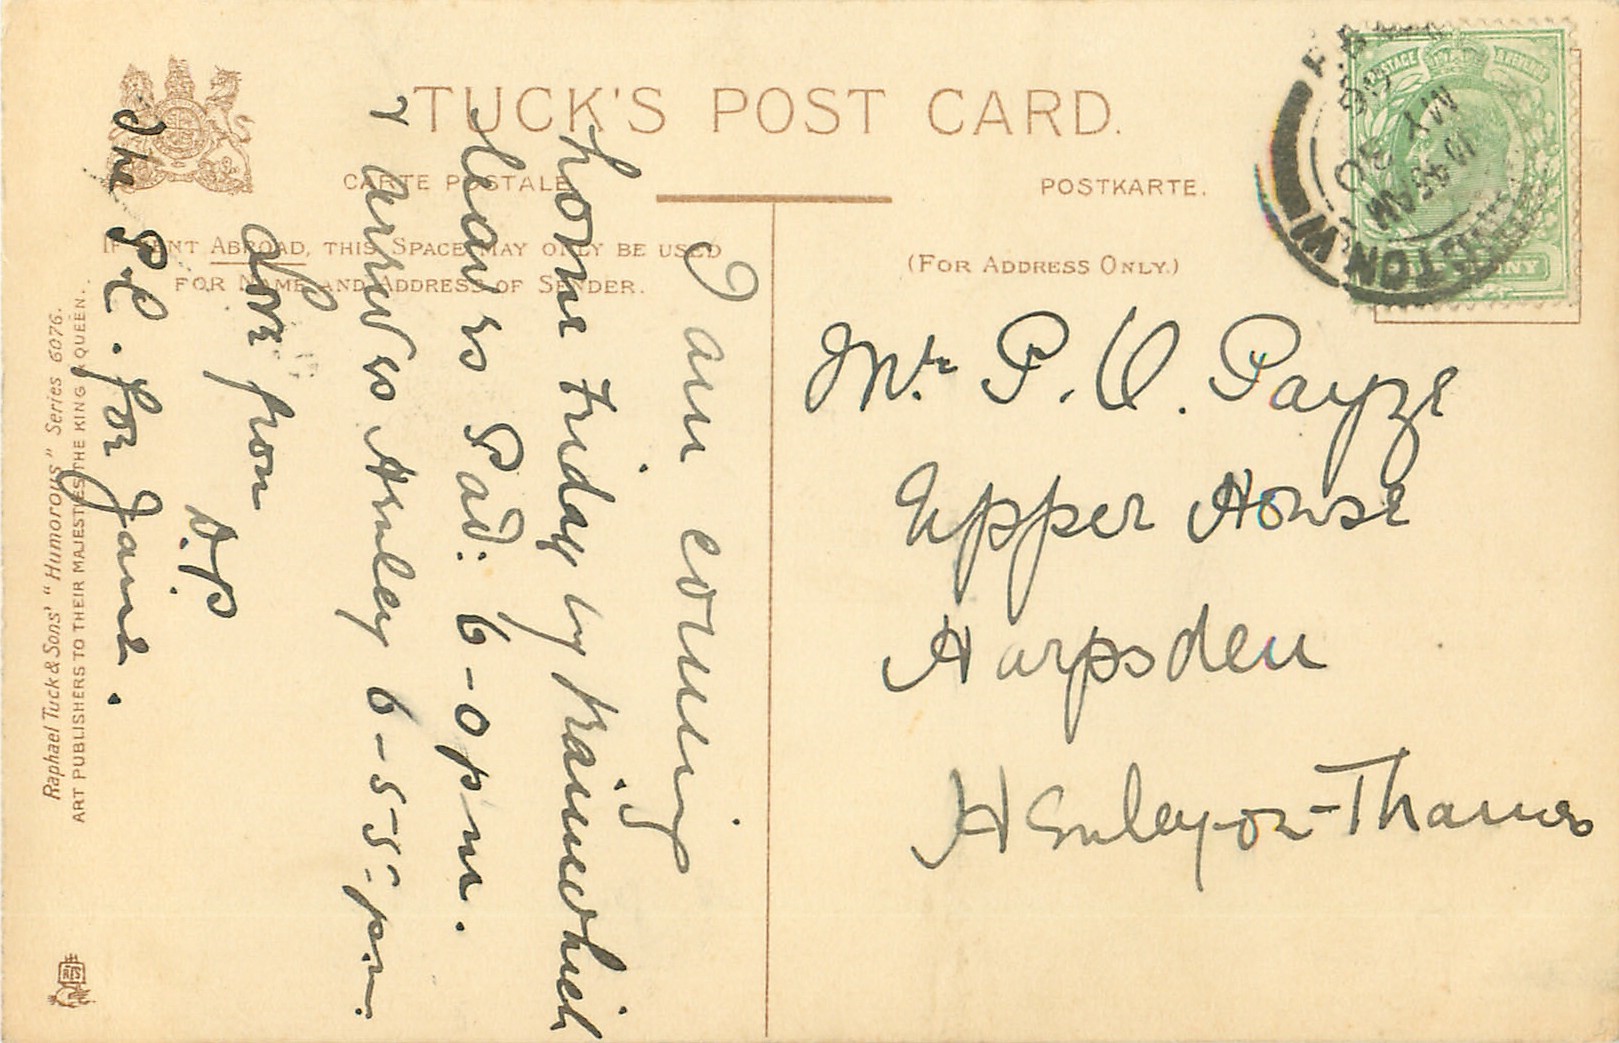 TUCK'S POST CARD.
CARTE POSTALE
POSTKARTE.
IF SENT ABROAD, THIS SPACE MAY ONLY BE USED
FOR NAME AND ADDRESS OF SENDER.
(FOR ADDRESS ONLY.)
Raphael Tuck & Sons' "Humorous" Series 6076.
ART PUBLISHERS TO THEIR MAJESTIES THE KING & QUEEN.
I am coming
home Friday by train which
leaves Pad: 6-0 pm.
& arrives Henley 6-55 pm.
Love from
D.P
The P.C. for Janie.
Mr. P. O. Payze
Upper House
Harpsden
Henley-on-Thames
POSTAGE & REVENUE
10 45 AM
MY 30
06